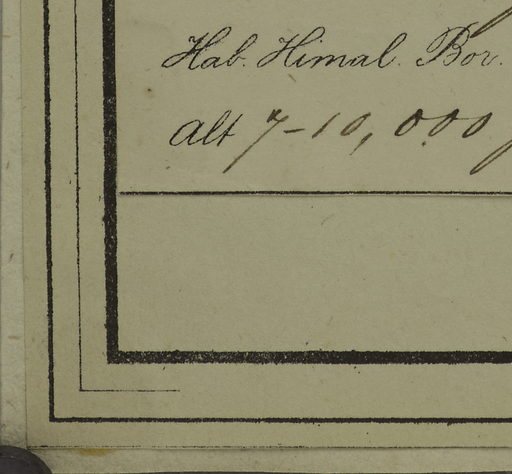 Hab. Himal. Bor.
Alt 7-10,000